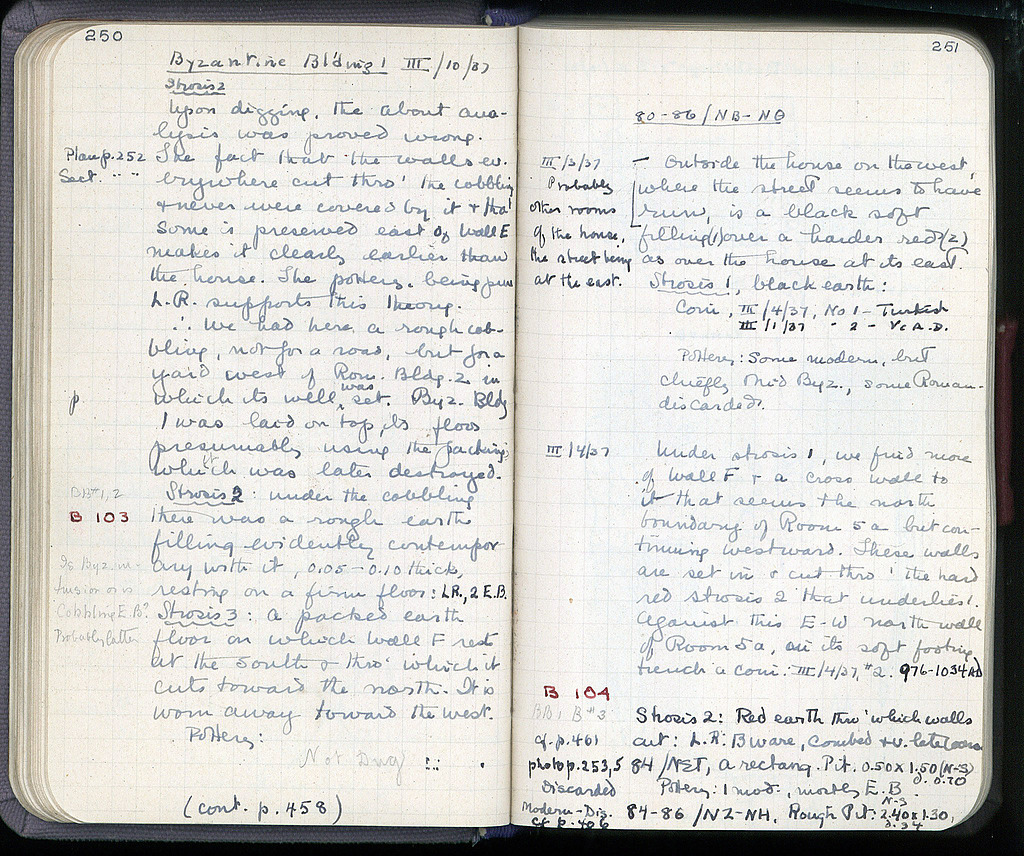 250
Byzantine Bldng 1 III/10/37
Strosis 2
Upon digging, the about ana-
lysis was proved wrong.
Plan p. 252
Sect. " "
The fact that the walls ev-
erywhere cut thro' the cobbling
& never were covered by it & that
some is preserved east of Wall E
makes it clearly earlier than
the house. The pottery being pure
L.R. supports this theory.
∴ We had here a rough cob-
bling, not for a road, but for a
yard west of Rom. Bldg. 2 in
p
which its well was set. Byz. Bldg
1 was laid on top, its floor
presumably using the packing,
which was later destroyed.
BB#1,2
Strosis 2: under the cobbling
B 103
there was a rough earth
filling evidently contempor-
ary with it, 0.05-0.10 thick,
resting on a firm floor: L.R., 2 E.B.
Is Byz. in-
trusion or is
Cobbling E.B.?
Probably latter
Strosis 3: a packed earth
floor on which Wall F rests
at the south & thro' which it
cuts toward the north. It is
worn away toward the west.
Pottery:
Not Dug
(cont. p. 458)
251
80-86/NB-NO
III/3/37
Probably
other rooms
of the house,
the street being
at the east.
Outside the house on the west,
where the street seems to have
run, is a black soft
filling (1) over a harder red (2)
as over the house at its east.
Strosis 1, black earth:
Coin, III/4/37, No 1 - Turkish
III/1/37 " 2 - V c A.D.
Pottery: Some modern, but
chiefly Mid Byz., some Roman-
discarded.
III/4/37
Under strosis 1, we find more
of Wall F & a cross wall to
it that seems the north
boundary of Room 5a but con-
tinuing westward. These walls
are set in & cut thro' the hard
red strosis 2 that underlies 1.
Against this E-W north wall
of Room 5a, in its soft footing
trench a coin: III/4/37, #2. 976-1034 AD
B 104
BB, B#3
Strosis 2: Red earth thro' which walls
cf. p. 461
cut: L.R. B ware, combed & v. late coarse
photo p. 253,5
84/NET, a rectang. Pit. 0.50 x 1.50 (N-S)
d. 0.70
Discarded
Pottery: 1 mod., mostly E.B.
Modern-Dis.
cf p. 406
84-86/NZ-NH, Rough Pit: 2.40 x 1.30,
N-S
d. 34